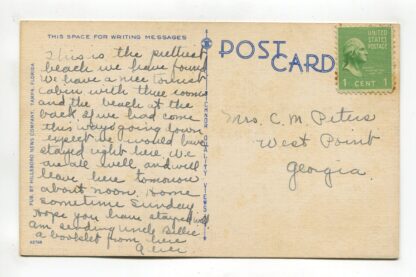 THIS SPACE FOR WRITING MESSAGES
This is the prettiest
beach we have found
We have a nice tourist
Cabin with three rooms
and the beach at the
back. If we had come
this way going down
expect we would have
stayed right here. We
are all well and will
leave here tomorrow
about noon. Home
sometime Sunday
Hope you have stayed well
am sending Uncle Billie
a booklet from here
PUB. BY HILLSBORO NEWS COMPANY, TAMPA, FLORIDA
POST CARD
UNITED
STATES
POSTAGE
1 CENT 1
Mrs. C. M. Peters
West Point
Georgia.